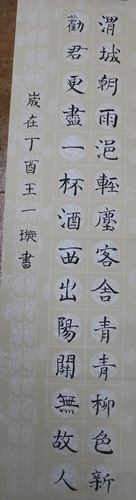 渭城朝雨浥輕塵客舍青青柳色新
勸君更盡一杯酒西出陽關無故人
歲在丁酉王一璇書